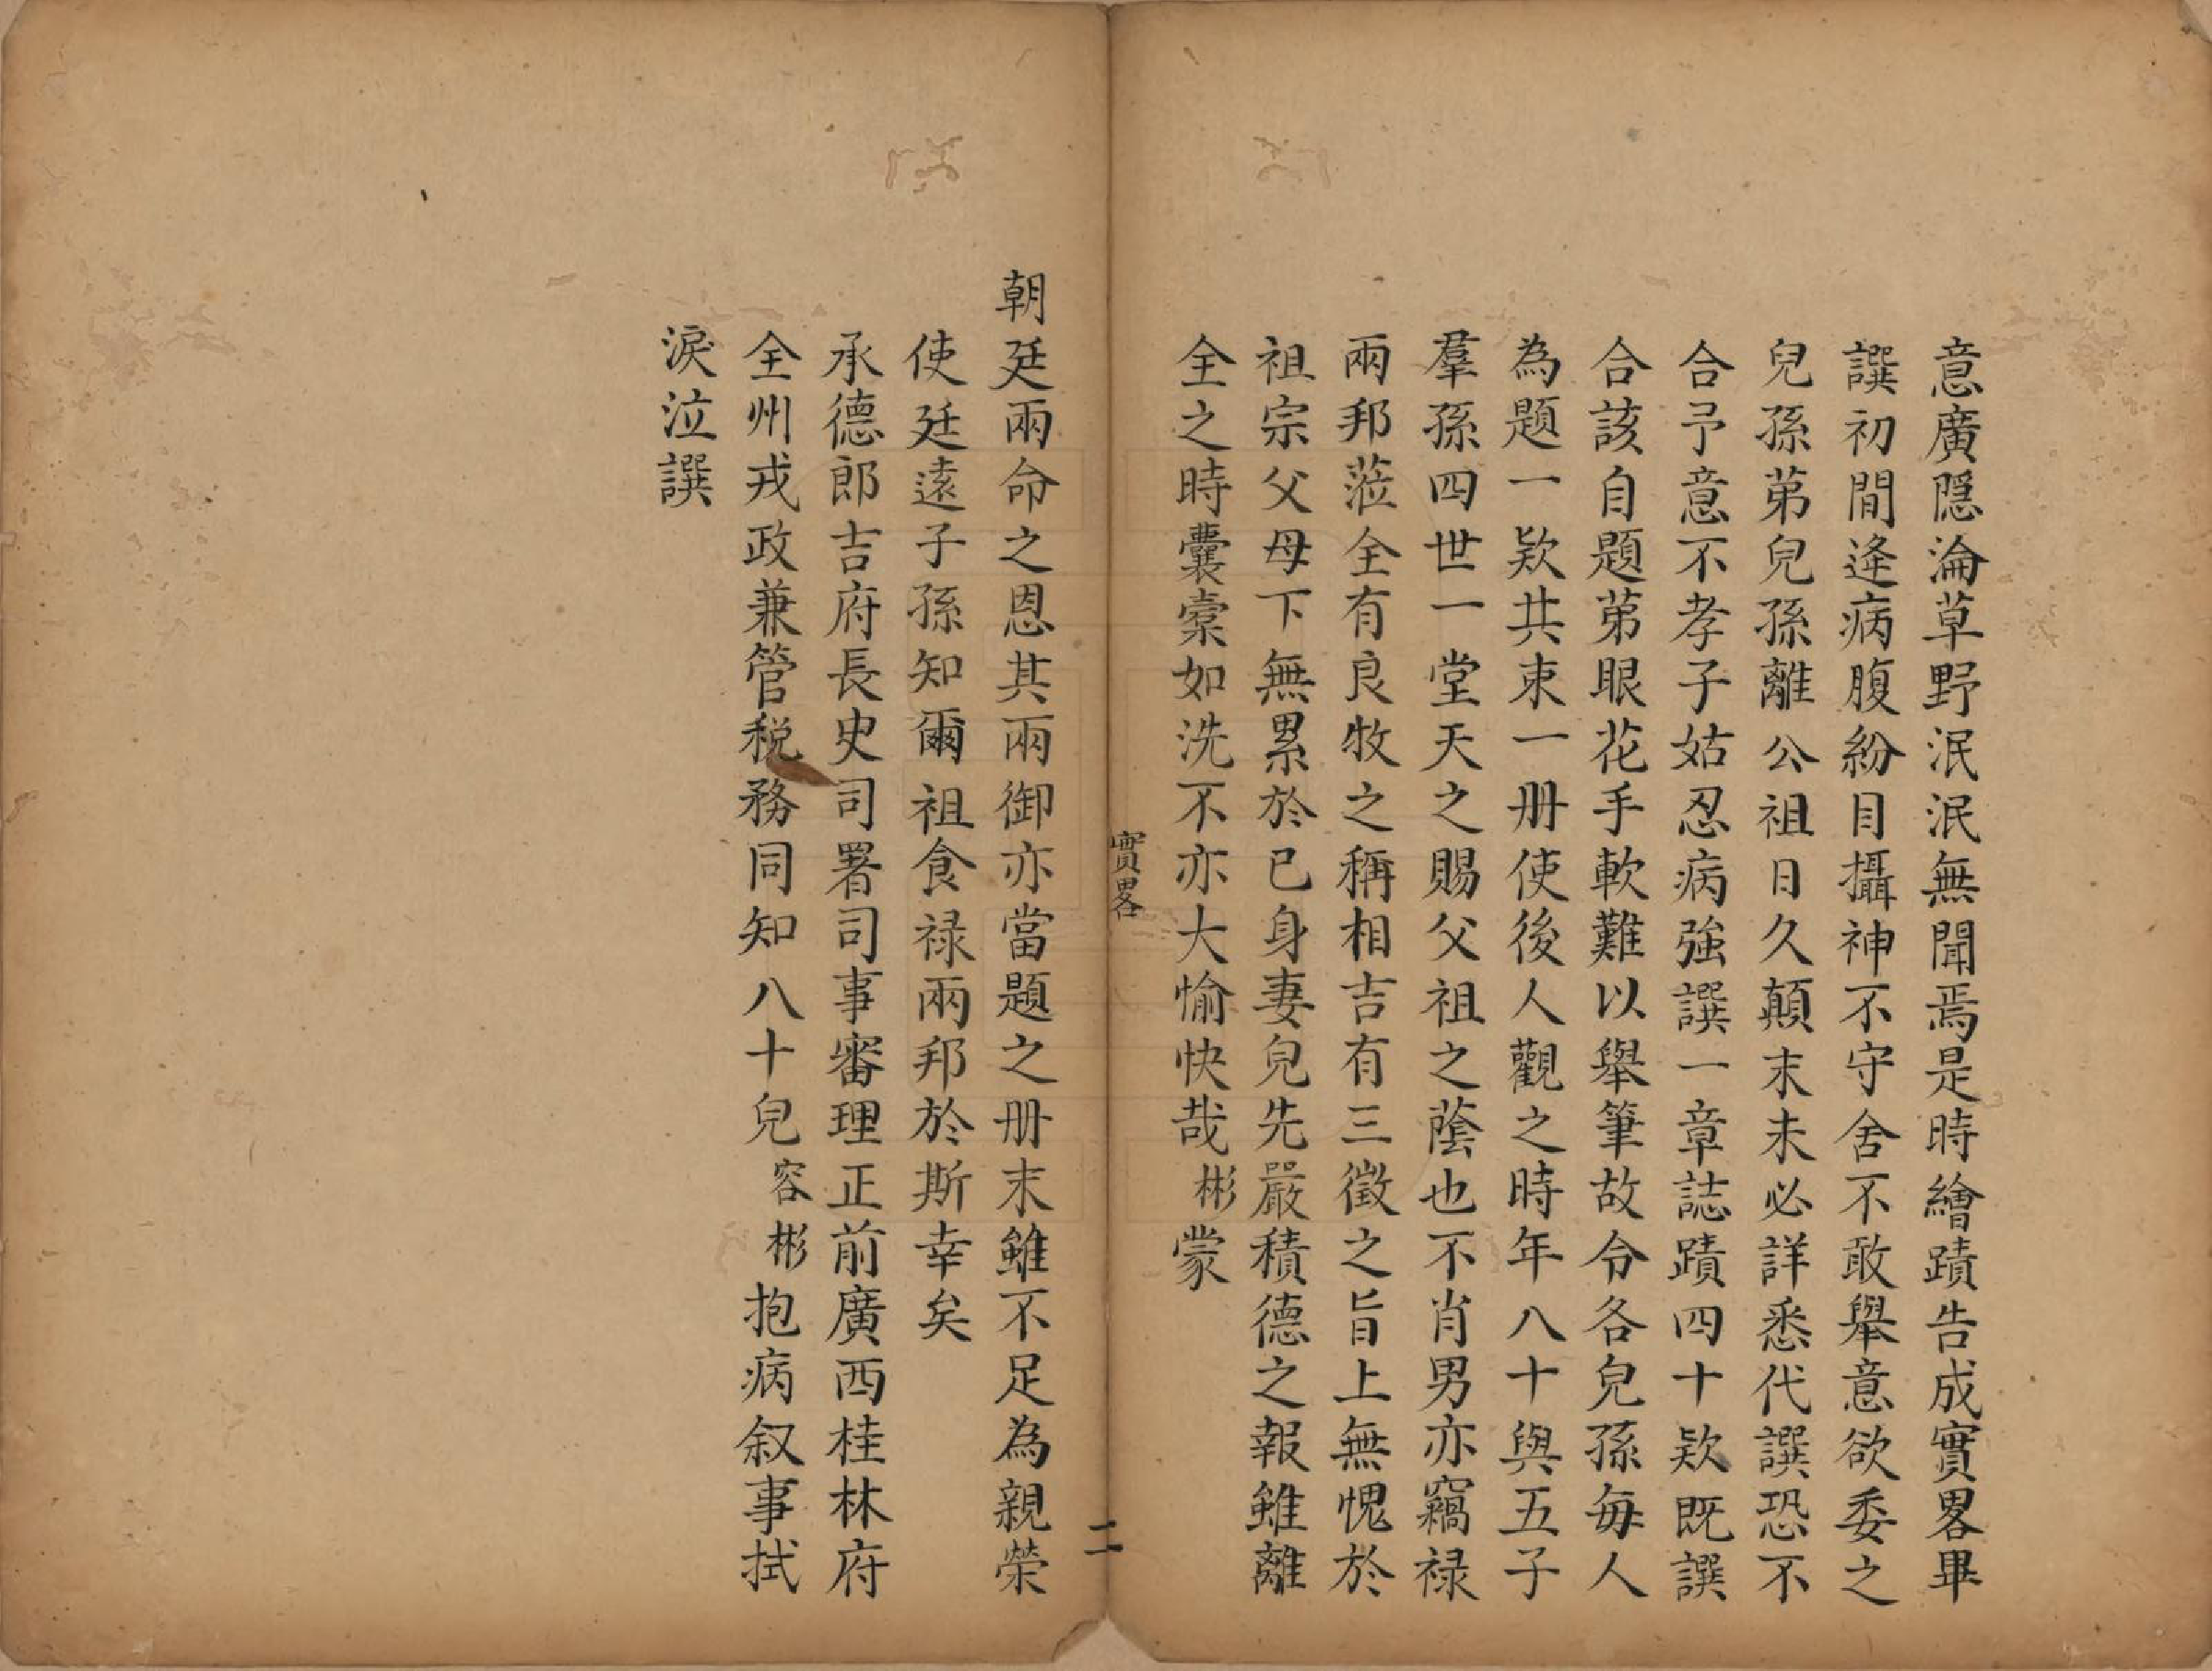 意廣隱淪草野泯泯無聞焉是時繪蹟告成實畧畢
譔初間逄病腹紛目攝神不守舍不敢舉意欲委之
兒孫苐兒孫離公祖日久顛末未必詳悉代譔恐不
合予意不孝子姑忍病強譔一章誌蹟四十欵既譔
合該自題苐眼花手軟難以舉筆故令各兒孫每人
為題一欵共束一册使後人觀之時年八十與五子
羣孫四世一堂天之賜父祖之蔭也不肖男亦竊禄
兩邦蒞全有良牧之稱相吉有三徵之旨上無愧於
祖宗父母下無累於已身妻兒先嚴積德之報雖離
全之時囊橐如洗不亦大愉快哉彬蒙
實畧
二
朝廷兩命之恩其兩御亦當題之册末雖不足為親榮
使廷遠子孫知爾祖食禄兩邦於斯幸矣
承德郎吉府長史司署司事審理正前廣西桂林府
全州戎政兼管税務同知八十兒容彬抱病叙事拭
淚泣譔